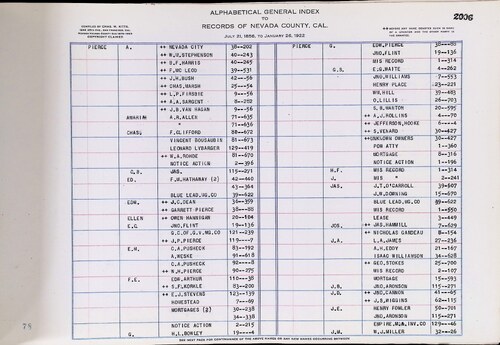 ALPHABETICAL GENERAL INDEX
TO
RECORDS OF NEVADA COUNTY, CAL.
JULY 31, 1856, TO JANUARY 26, 1922
2006
COPYRIGHT CLAIMED
PIERCE A. ++ NEVADA CITY 38--202
++ W.H.STEPHENSON 40--243
++ S.F.HARRIS 40--245
++ F.MC LEOD 39--531
++ J.H.BUSH 42--56
++ CHAS.MARSH 25--54
++ L.P.FIRSBIE 9--56
++ A.A.SARGENT 8--252
++ J.B.VAN HAGAN 9--56
A.R.ALLEN 71--635
" 71--636
CHAS. F.CLIFFORD 88--672
VINCENT SOUSAUBIN 81--673
LEONARD LYBARGER 129--419
++ W.A.ROHDE 81--670
NOTICE ACTION 2--396
C.B. JAS. 115--271
ED. F.W.HATHAWAY (2) 42--440
43--364
BLUE LEAD,HG.CO 39--622
EDW. ++ J.C.DEAN 36--359
++ GARRETT PIERCE 38--88
ELLEN ++ OWEN HANNIGAN 20--184
E.G. JNO.FLINT 19--136
G.C.OF G.V.MG.CO 121--239
++ J.P.PIERCE 119---7
E.H. C.A.PUSHECK 83--192
A.WESKE 91--618
C.A.PUSHECK 92---8
++ N.H.PIERCE 90--275
F.E. EDW.ARTHUR 110--38
++ S.F.KORHLE 83--200
++ E.J.STEVENS 123--139
HOMESTEAD 7--69
MORTGAGES (2) 30--238
34--338
NOTICE ACTION 2--215
G. H.L.BOWLEY 19---4
PIERCE G. EDW.PIERCE 38--88
JNO.FLINT 19--136
MIS RECORD 1--314
G.S. E.G.WAITE 4--262
JNO.WILLIAMS 7--553
HENRY PLACE 23--221
WM.HILL 39--483
O.LILLIS 26--703
E.B.HARTON 20--595
++ A.J.ROLLINS 4--70
++ JEFFERSON,HOOKE 6---4
++ S.VENARD 30--427
++ UNKLOWN OWNERS 30--427
POW ATTY 1--360
MORTGAGE 8--316
NOTICE ACTION 1--196
H.F. MIS RECORD 1--314
J. MIS " 2--241
JAS. J.T.O'CARROLL 39--607
J.W.DOWNING 15--670
BLUE LEAD,HG.CO 89--622
MIS RECORD 1--550
LEASE 3--449
JOS. ++ JAS.HAMMILL 7--629
++ NICHOLAS GANDEAU 8--154
J.A. L.A.JAMES 27--236
A.H.EDDY 21--167
ISAAC WILLIAMSON 34--528
++ GEO.STOKES 25--706
MIS RECORD 2--107
MORTGAGE 15--593
J.B. JNO.ARONSON 115--271
J.D. ++ JNO.CARSON 41--65
++ J.S.WIGGINS 62--115
J.E. HENRY FOWLER 50--701
JNO.ARONSON 115--271
EMPIRE,M&N,INV.CO 129--46
J.M. ++ W.J.MILLER 32--26
79